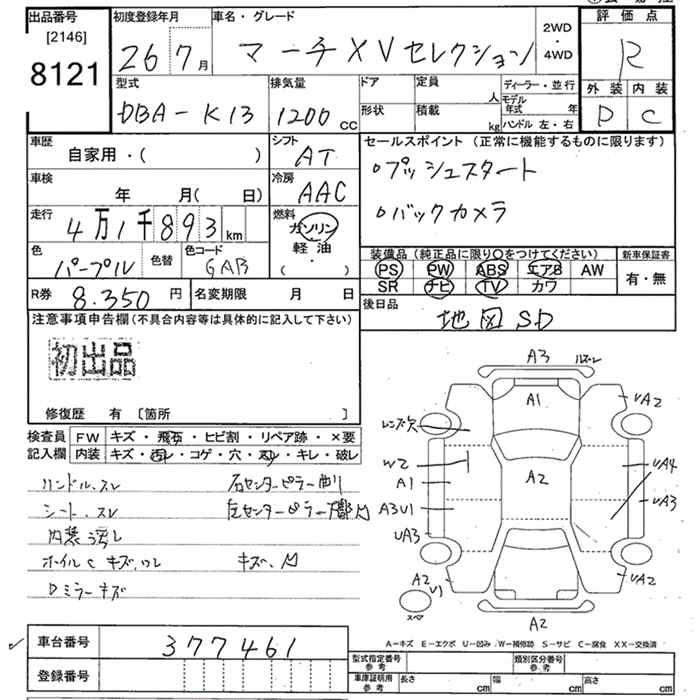 出品番号
[2146]
8121
初度登録年月
26 7月
車名・グレード
マーチ XVセレクション
2WD
・
4WD
評価点
R
外装 内装
D C
型式
DBA-K13
排気量
1200 cc
ドア
形状
定員 人
積載 kg
ディーラー・並行
モデル年式 年
ハンドル 左・右
車歴
自家用・( )
シフト
AT
車検
年 月( 日)
冷房
AAC
走行
4万1千893 km
燃料
ガソリン
軽・油
( ・ )
色
パープル
色替
色コード
GAB
R券 8.350 円
名変期限 月 日
セールスポイント (正常に機能するものに限ります)
○プッシュスタート
○バックカメラ
装備品 (純正品に限り○をつけてください)
PS PW ABS エアB AW
SR ナビ TV カワ
新車保証書
有・無
後日品
地図SD
注意事項申告欄(不具合内容等は具体的に記入して下さい)
初出品
修復歴 有 [箇所 ]
検査員記入欄
FW キズ・飛石・ヒビ割・リペア跡・×要
内装 キズ・汚レ・コゲ・穴・スレ・キレ・破レ
ハンドル、スレ
右センターピラー曲り
シート、スレ
内装 汚レ
ホイルCキズ、ワレ
キズ、凹
Dミラーキズ
A3
A1
UA2
レンズ欠
W2
A1
A2
UA4
A3U1
UA3
UA3
A2
U1
UA2
スペア
A2
A-キズ E-エクボ U-凹み W-補修跡 S-サビ C-腐食 XX-交換済
車台番号 377461
登録番号
型式指定番号参考
類別区分番号参考
車庫証明用参考
長さ cm
幅 cm
高さ cm